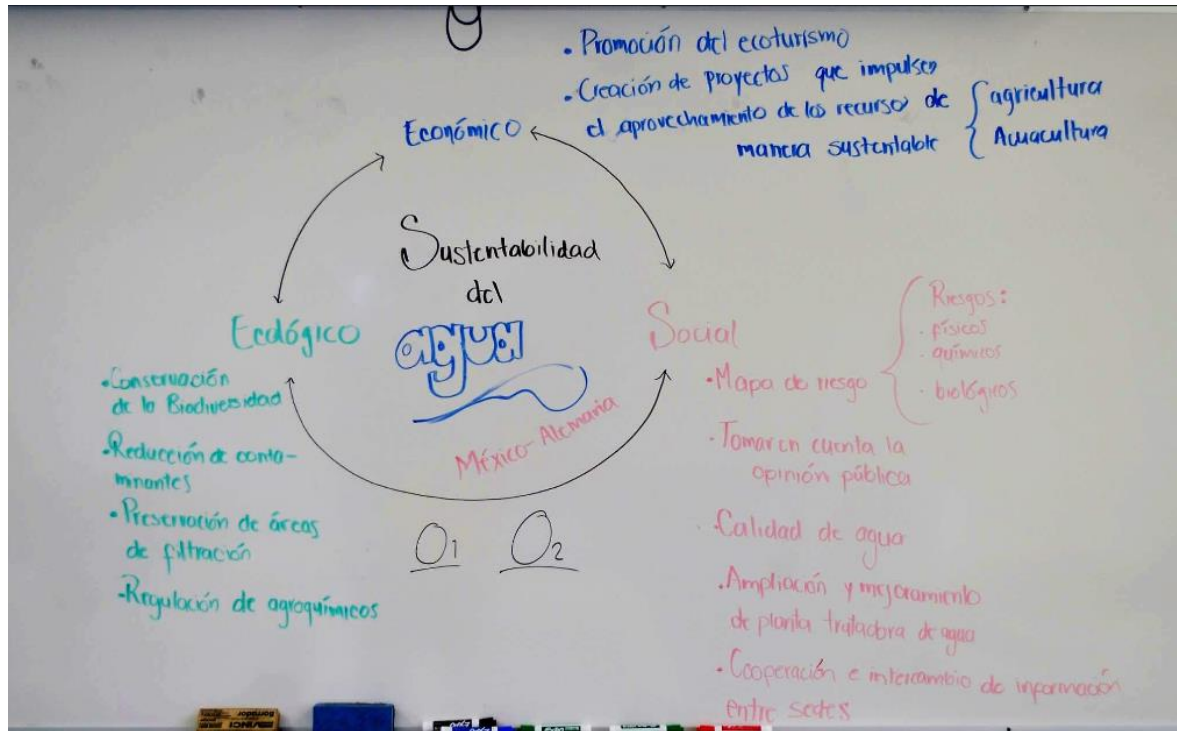 • Promoción del ecoturismo
• Creación de proyectos que impulsen
el aprovechamiento de los recursos de
manera sustentable
{ agricultura
Acuacultura
Económico
Sustentabilidad
del
agua
México-Alemania
Ecológico
• Conservación
de la Biodiversidad
• Reducción de conta-
minantes
• Preservación de áreas
de filtración
- Regulación de agroquímicos
O1 O2
Social
• Mapa de riesgo
{ Riesgos:
• físicos
• químicos
• biológicos
• Tomar en cuenta la
opinión pública
• Calidad de agua
• Ampliación y mejoramiento
de planta tratadora de agua
• Cooperación e intercambio de información
entre sedes